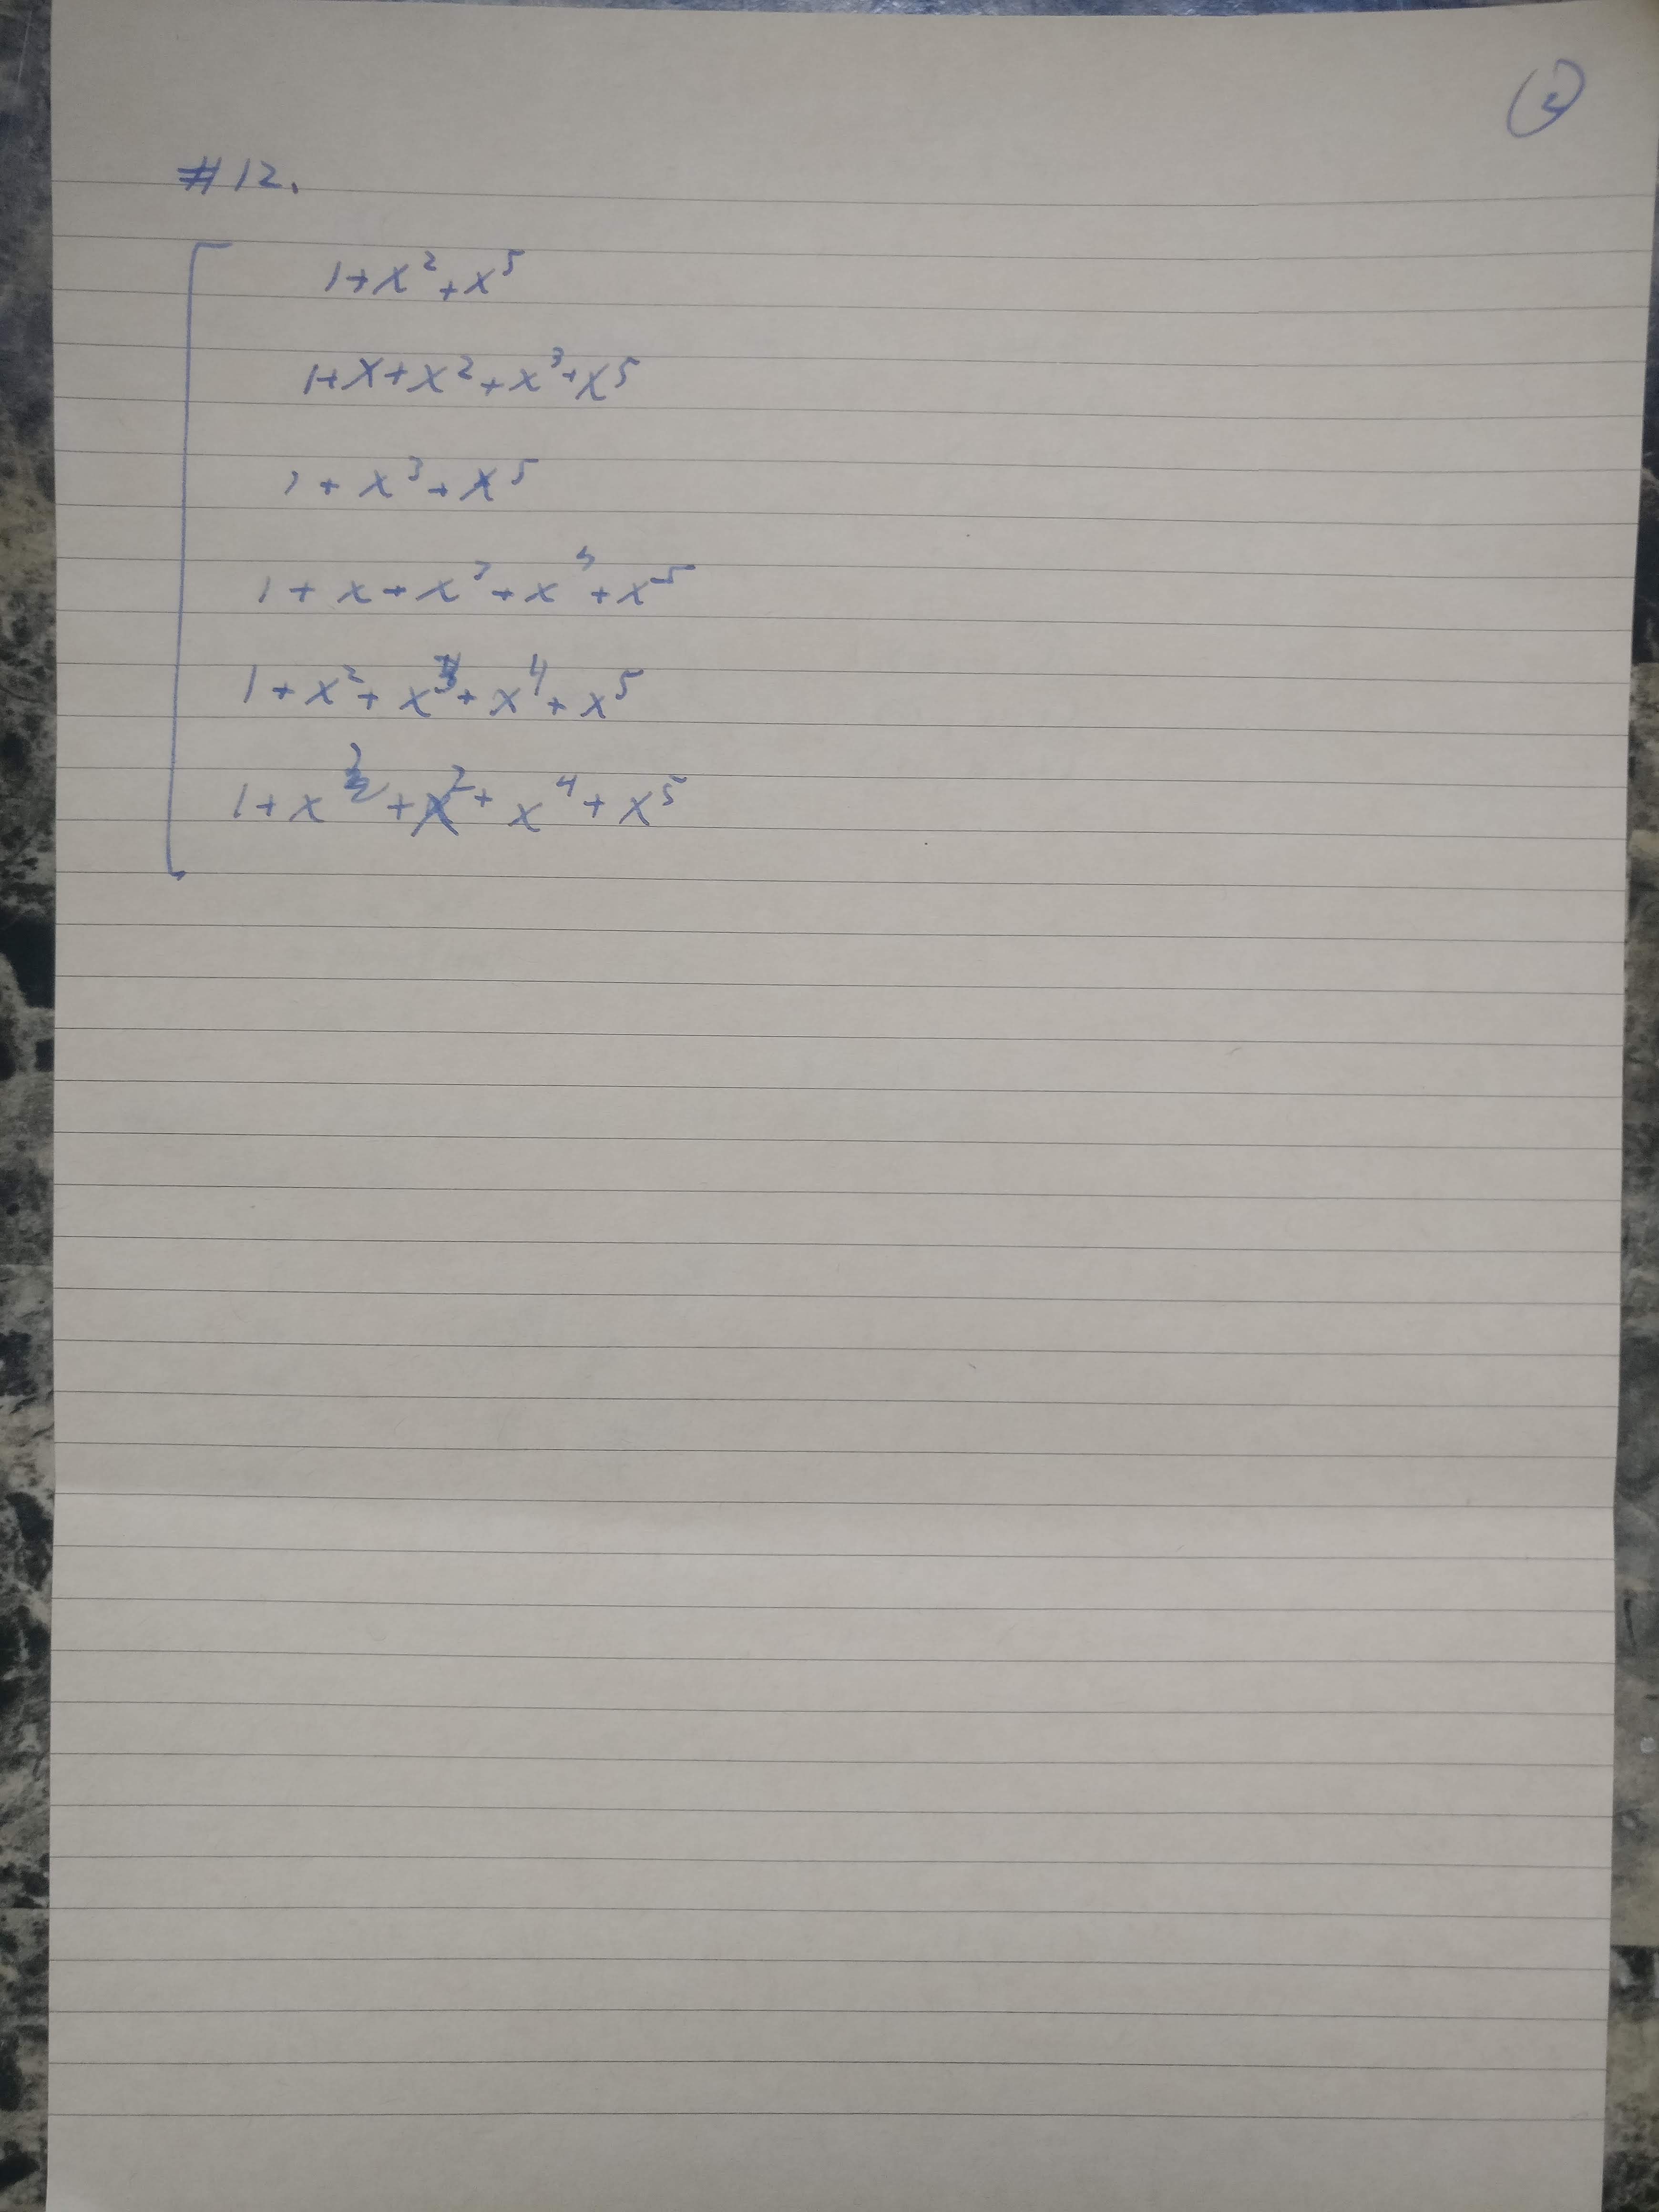 ②
#12.
1+x²+x⁵
1+x+x²+x³+x⁵
1+x³+x⁵
1+x+x³+x⁴+x⁵
1+x²+x³+x⁴+x⁵
1+x +x²+x⁴+x⁵